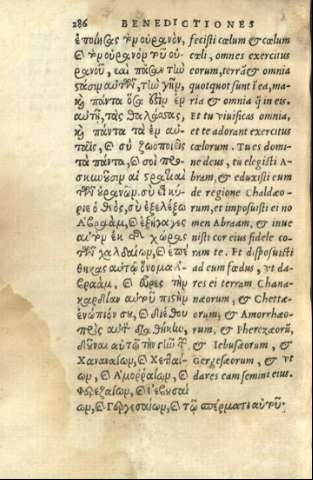 286 BENEDICTIONES
ἐποίησας τὸν οὐρανὸν,
καὶ τὸν οὐρανὸν τοῦ οὐ-
ρανοῦ, καὶ πᾶσαν τὴν
στάσιν αὐτῶν, τὴν γῆν,
καὶ πάντα ὅσα ἐν
αὐτῇ, τὰς θαλάσσας,
καὶ πάντα τὰ ἐν αὐ-
ταῖς, καὶ σὺ ζωοποιεῖς
τὰ πάντα, καὶ σοὶ προσ-
κυνοῦσιν αἱ στρατιαὶ
τῶν οὐρανῶν. σὺ εἶ κύ-
ριε ὁ θεὸς, σὺ ἐξελέξω
Ἀβραὰμ, καὶ ἐξήγαγες
αὐτὸν ἐκ τῆς χώρας
τῶν χαλδαίων, καὶ ἐπέ-
θηκας αὐτῷ ὄνομα Ἀ-
βραὰμ, καὶ εὗρες τὴν
καρδίαν αὐτοῦ πιστὴν
ἐνώπιόν σου, καὶ διέθου
πρὸς αὐτὸν διαθήκην,
δοῦναι αὐτῷ τὴν γῆν τῶν
Χαναναίων, καὶ Χετταί-
ων, καὶ Ἀμοῤῥαίων, καὶ
Φερεζαίων, καὶ Ἰεβουσαί
ων, καὶ Γεργεσαίων, καὶ τῷ σπέρματι αὐτοῦ·
fecisti cœlum & cœlum
cœli, omnes exercitus
eorum, terrā & omnia
quotquot sunt ī ea, ma-
ria & omnia q̄ in eis.
Et tu viuificas omnia,
et te adorant exercitus
cœlorum. Tu es domi-
ne deus, tu elegisti A-
bram, & eduxisti eum
de regione Chaldæo-
rum, et imposuisti ei no
men Abraam, & inue
nisti cor eius fidele co-
ram te. Et disposuisti
ad eum fœdus, vt da-
res ei terram Chana-
næorum, & Chettæ-
orum, & Amorrhæo-
rum, & Pherezæorū,
& Iebusæorum, &
Gergesæorum, & vt
dares eam semini eius.